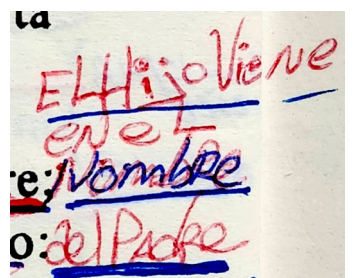 ta
El Hijo Viene
en el
e; Nombre
o: del Padre